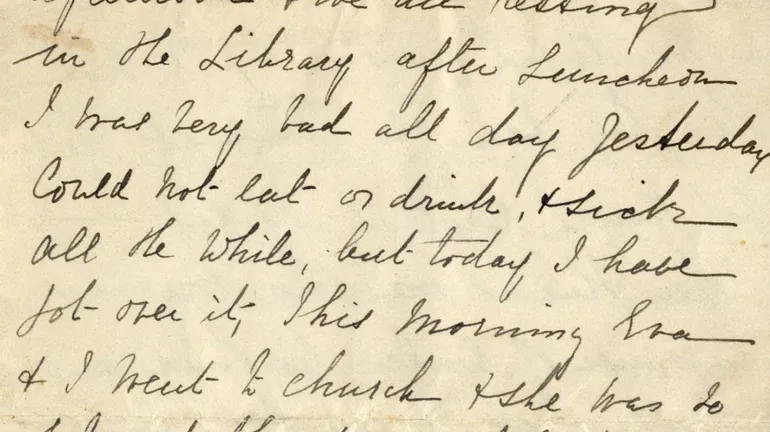 afternoon & we are resting
in the Library after Luncheon
I was very bad all day Yesterday
Could not eat or drink, & sick
all the while, but today I have
got over it, This morning Eva
& I went to church & she was so